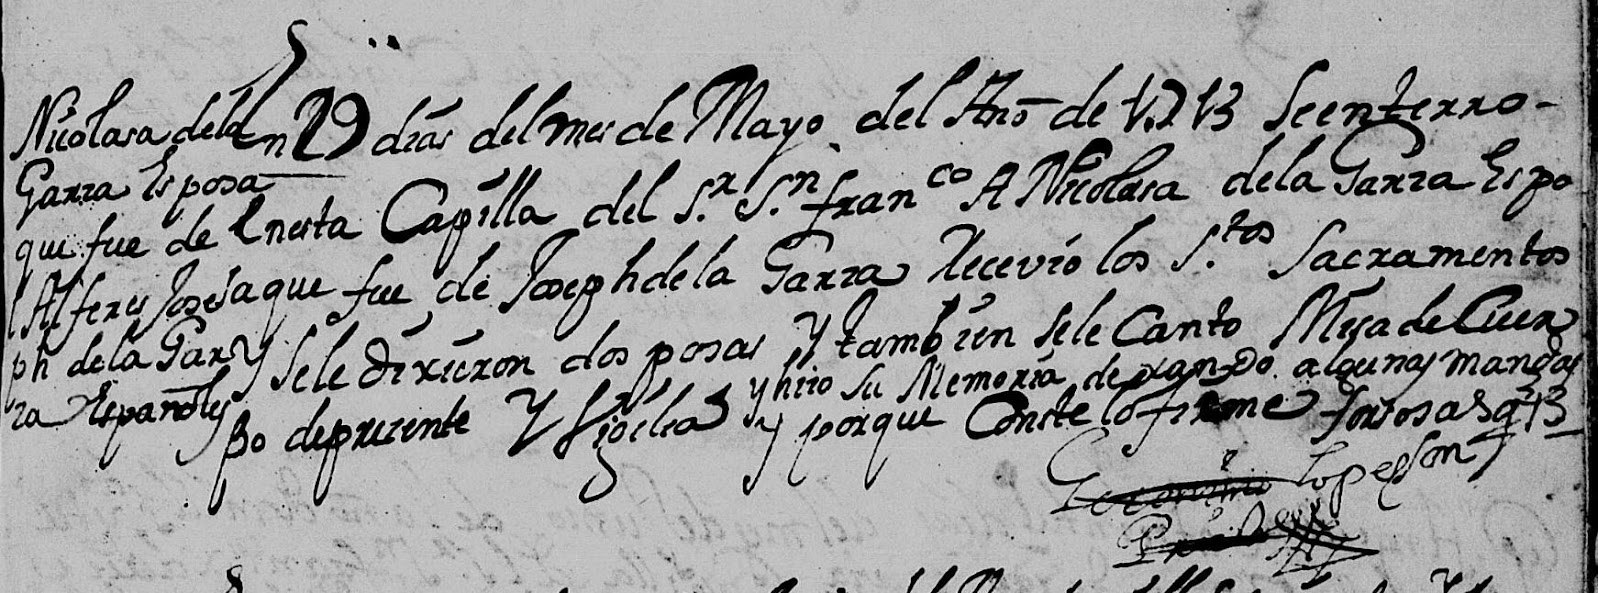 Nicolasa dela
Garza Esposa
que fue de l
Alferes Jose
ph de la Gar
za Españoles
En 29 dias del mes de Mayo del Año de 1713 Se enterro-
Enesta Capilla del S.r S.n fran.co A Nicolasa dela Garza Espo
sa que fue de Joseph de la Garza Recevio los S.tos Sacramentos
y sele dixeron dos posas y tambien sele Canto Misa de Cuer
po depresente y Vigilia y hizo su Memoria dexando algunas mandas
y porque Conste lo firme
Geronimo Lopez
Prieto